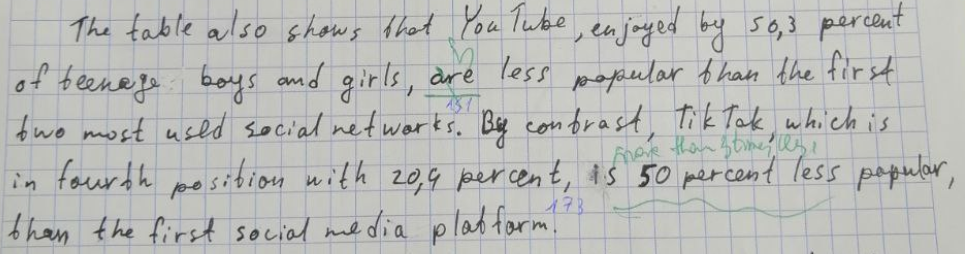 The table also shows that YouTube, enjoyed by 50,3 percent
of teenage boys and girls, are less popular than the first
151
two most used social networks. By contrast, TikTok, which is
more than 3 times less
in fourth position with 20,9 percent, is 50 percent less popular,
173
than the first social media platform.